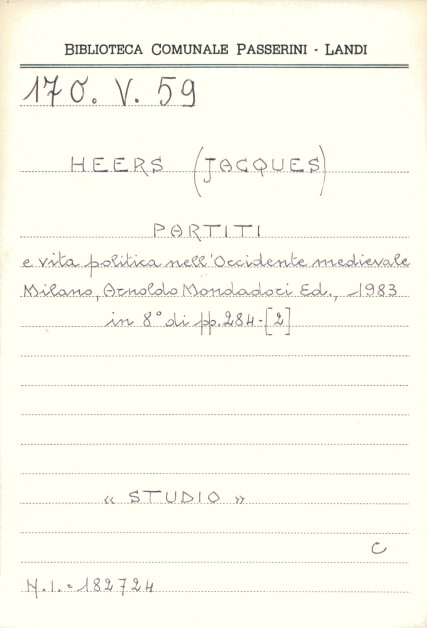 BIBLIOTECA COMUNALE PASSERINI - LANDI
170. V. 59
HEERS (JACQUES)
PARTITI
e vita politica nell'Occidente medievale
Milano, Arnoldo Mondadori Ed., 1983
in 8° di pp. 284-[2]
« STUDIO »
C
N.I. = 182724